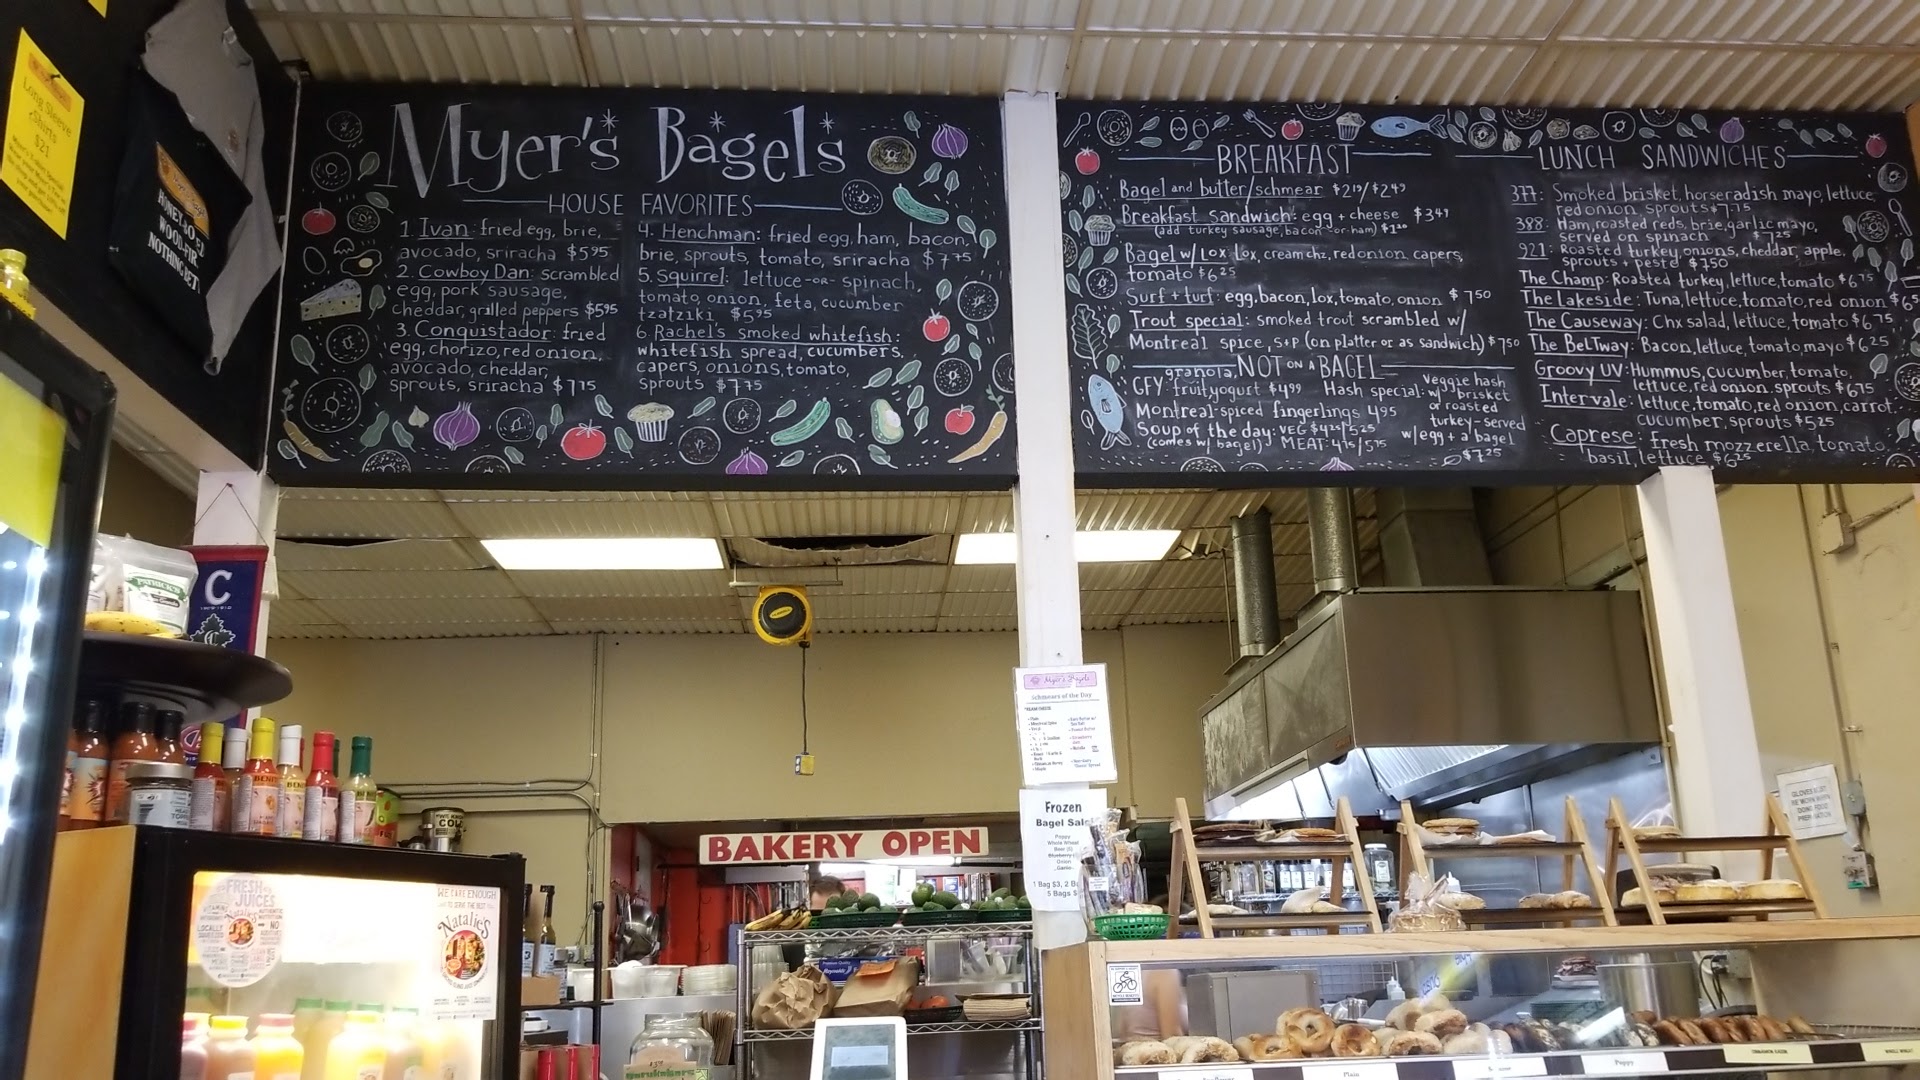 Long Sleeve
Shirts
$21
HONEY-BO EZ
WOOD-FIR
NOTHING BET
Myer's Bagels
HOUSE FAVORITES
1. Ivan: fried egg, brie,
avocado, sriracha $5.95
2. Cowboy Dan: scrambled
egg, pork sausage,
cheddar, grilled peppers $5.95
3. Conquistador: fried
egg, chorizo, red onion,
avocado, cheddar,
sprouts, sriracha $7.75
4. Henchman: fried egg, ham, bacon,
brie, sprouts, tomato, sriracha $7.75
5. Squirrel: lettuce -or- spinach,
tomato, onion, feta, cucumber
tzatziki $5.95
6. Rachel's smoked whitefish:
whitefish spread, cucumbers,
capers, onions, tomato,
sprouts $7.75
BREAKFAST
Bagel and butter/schmear $2.19/$2.49
Breakfast Sandwich: egg + cheese $3.49
(add turkey sausage, bacon -or- ham) $1.20
Bagel w/ Lox: Lox, cream chz, red onion, capers,
tomato $6.25
Surf + turf: egg, bacon, lox, tomato, onion $7.50
Trout special: smoked trout scrambled w/
Montreal spice, s+p (on platter or as sandwich) $7.50
NOT ON A BAGEL
granola,
GFY: fruit, yogurt $4.99
Montreal-spiced fingerlings 4.95
Soup of the day: VEG $4.25/5.25
(comes w/ bagel) MEAT: 4.75/5.75
Hash special: veggie hash
w/ brisket
or roasted
turkey - served
w/ egg + a bagel
$7.25
LUNCH SANDWICHES
377: Smoked brisket, horseradish mayo, lettuce,
red onion, sprouts $7.75
388: Ham, roasted reds, brie, garlic mayo,
served on spinach $7.25
921: Roasted turkey, onions, cheddar, apple,
sprouts + pesto $7.50
The Champ: Roasted turkey, lettuce, tomato $6.75
The Lakeside: Tuna, lettuce, tomato, red onion $6.5
The Causeway: Chx salad, lettuce, tomato $6.75
The BeLTway: Bacon, lettuce, tomato, mayo $6.25
Groovy UV: Hummus, cucumber, tomato,
lettuce, red onion, sprouts $6.75
Intervale: lettuce, tomato, red onion, carrot,
cucumber, sprouts $5.25
Caprese: fresh mozzerella, tomato,
basil, lettuce $6.25
C
Myer's Bagels
Schmears of the Day
Frozen
Bagel Sale
Poppy
Whole Wheat
Onion
1 Bag $3, 2 B
5 Bags $
BAKERY OPEN
GLOVES MUST
BE WORN WHEN
DOING FOOD
PREPARATION
FRESH
JUICES
Natalie's
LOCALLY
AUTHENTIC
NO
WE CARE ENOUGH
TO SERVE THE BEST
Natalie's
COL
Reynolds
Plain
Poppy